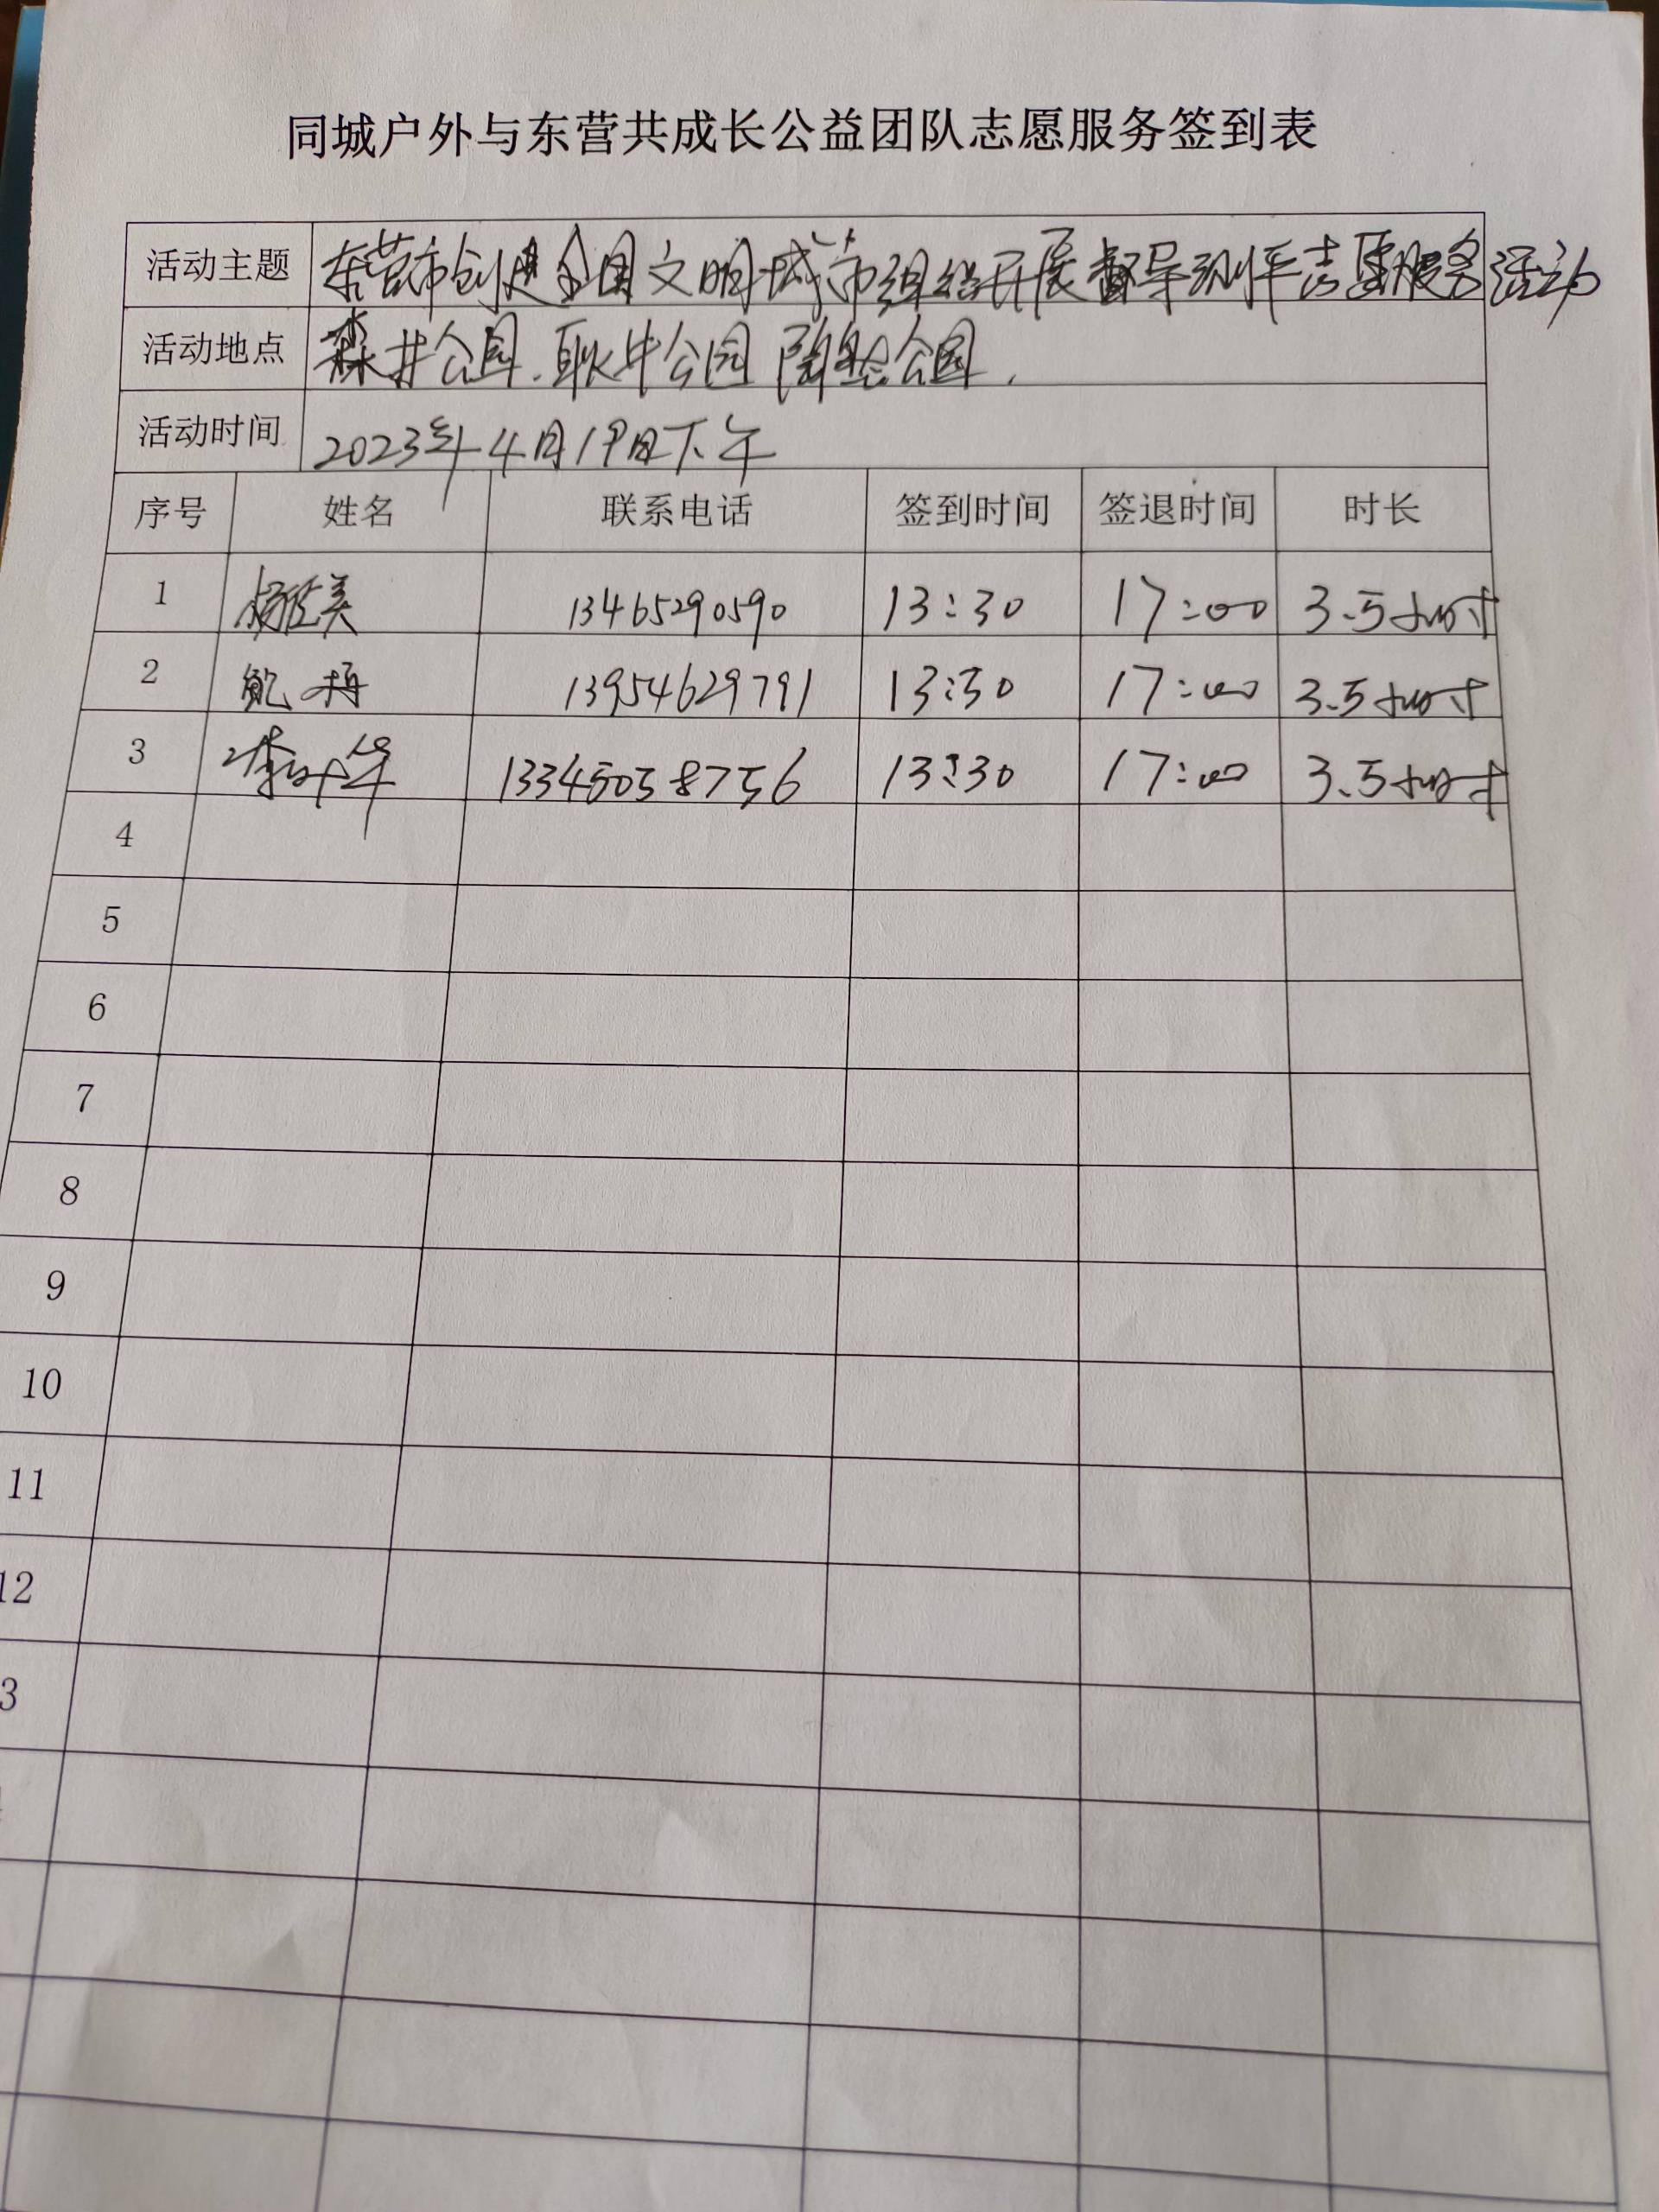 同城户外与东营共成长公益团队志愿服务签到表
活动主题 东营市创建全国文明城市组织开展督导测评志愿服务活动
活动地点 森林公园.耿井公园 公园.
活动时间 2023年4月19日下午
序号 姓名 联系电话 签到时间 签退时间 时长
1 13465290590 13:30 17:00 3.5小时
2 鲍梅 13954629791 13:30 17:00 3.5小时
3 13345058756 13:30 17:00 3.5小时
4
5
6
7
8
9
10
11
12
3